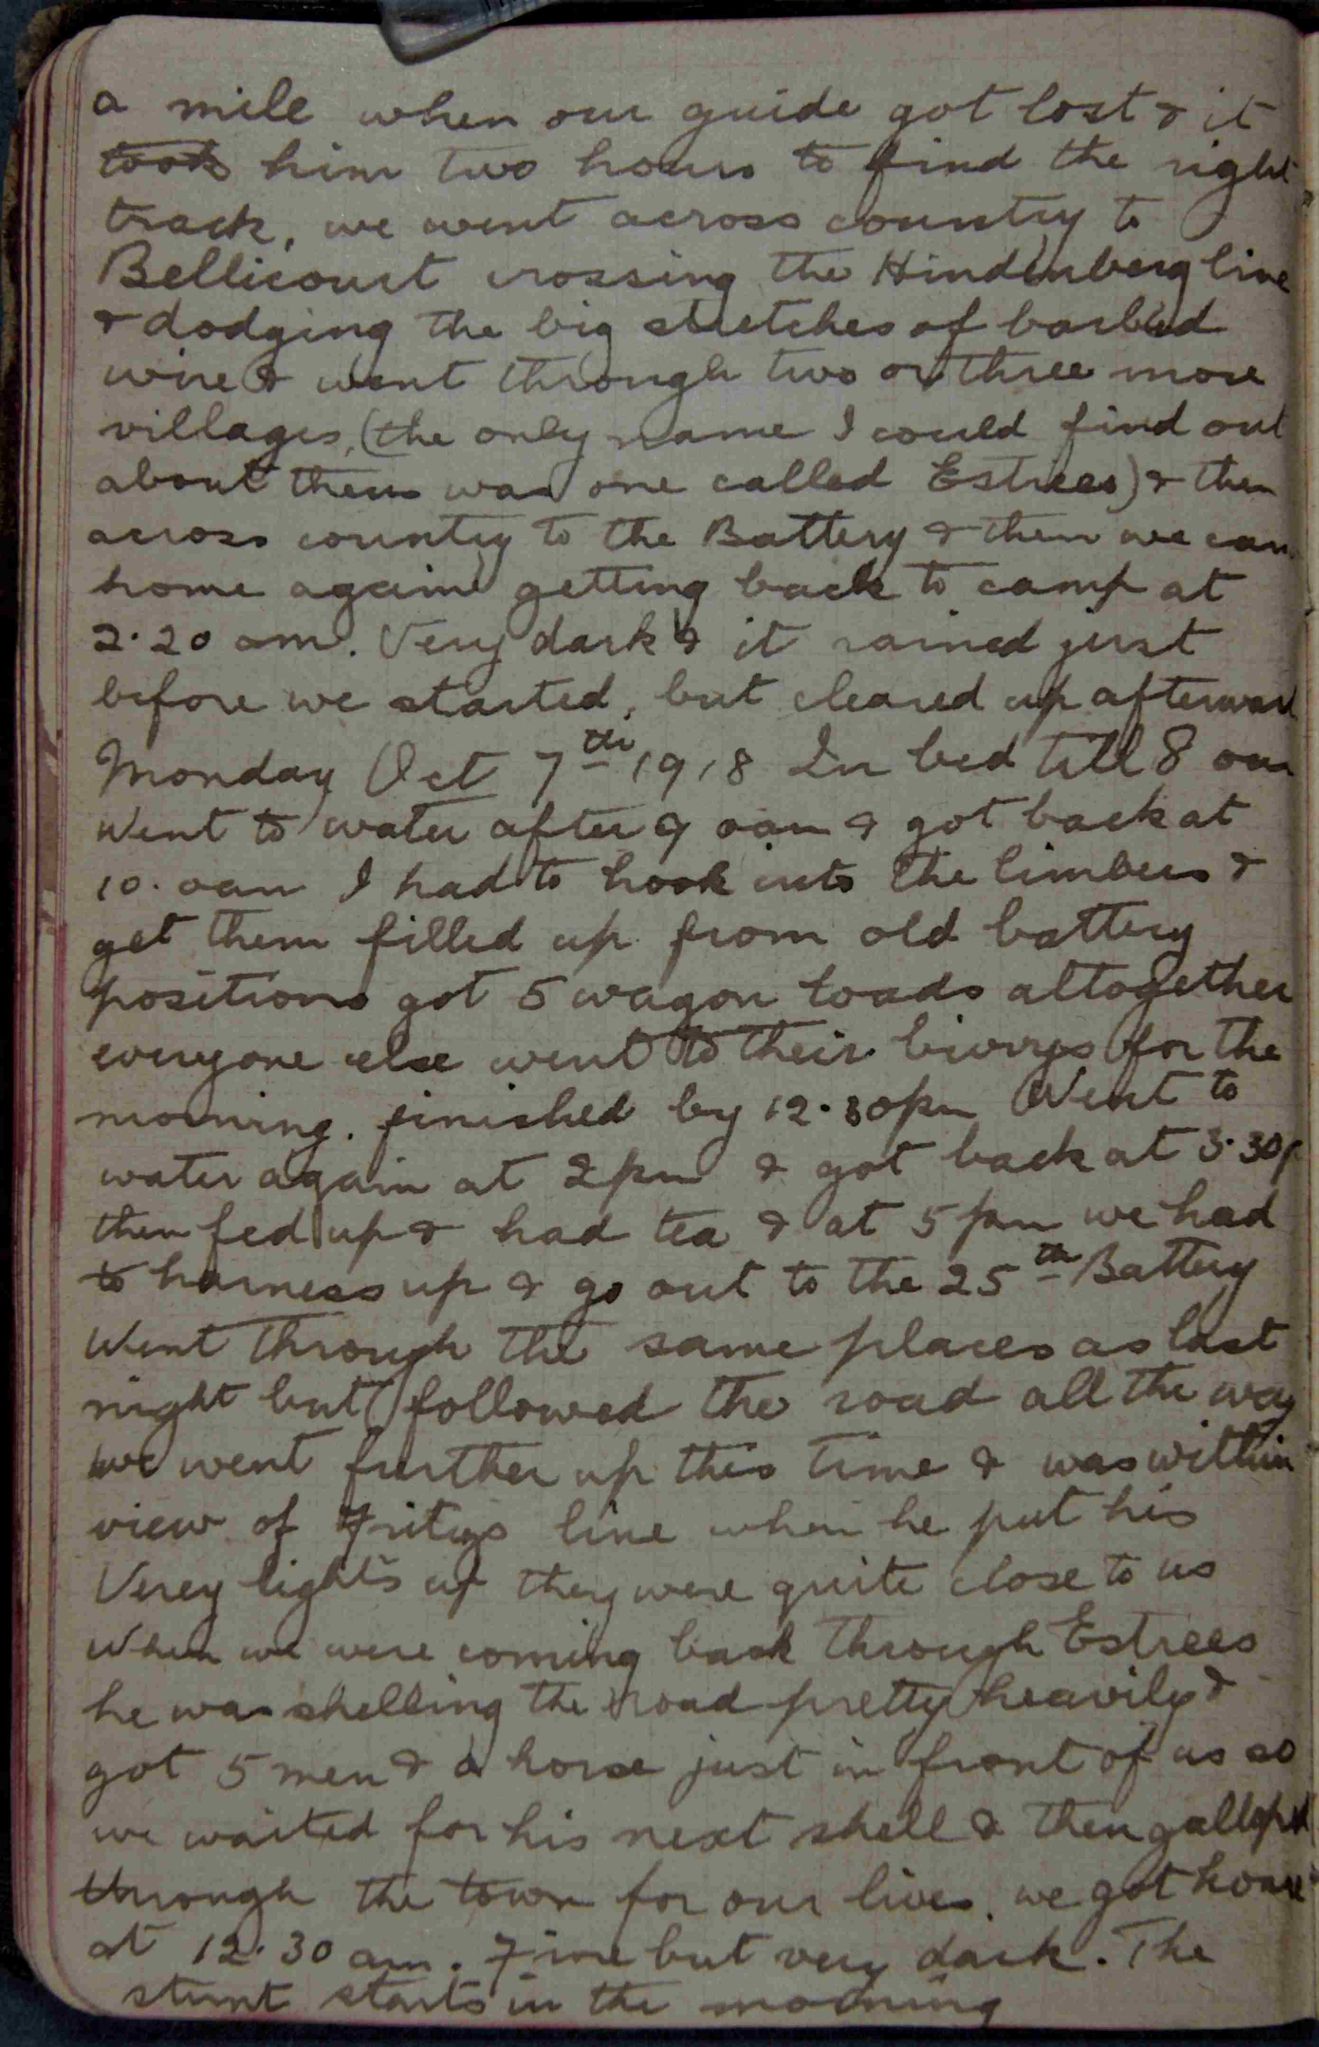 a mile when our guide got lost & it
took him two hours to find the right
track, we went across country to
Bellicourt crossing the Hindenberg line
& dodging the big stretches of barbed
wire & went through two or three more
villages, (the only name I could find out
about them was one called Estrees) & then
across country to the Battery & then we cam
home again getting back to camp at
2.20 am. Very dark & it rained just
before we started, but cleared up afterward
Monday Oct 7th 1918 In bed till 8 am
Went to water after 9 am & got back at
10. am I had to hook into the limbers &
get them filled up from old battery
positions got 5 wagon loads altogether
everyone else went to their bivvys for the
morning. finished by 12.30pm Went to
water again at 2pm & got back at 3.30p
then fed up & had tea & at 5 pm we had
to harness up & go out to the 25th Battery
Went through the same places as last
night but followed the road all the way
we went further up this time & was within
view of Fritzs line when he put his
Verey lights up they were quite close to us
When we were coming back through Estrees
he was shelling the road pretty heavily &
got 5 men & a horse just in front of us so
we waited for his next shell & then galloped
through the town for our lives. we got home
at 12.30 am. Fine but very dark. The
stunt starts in the morning